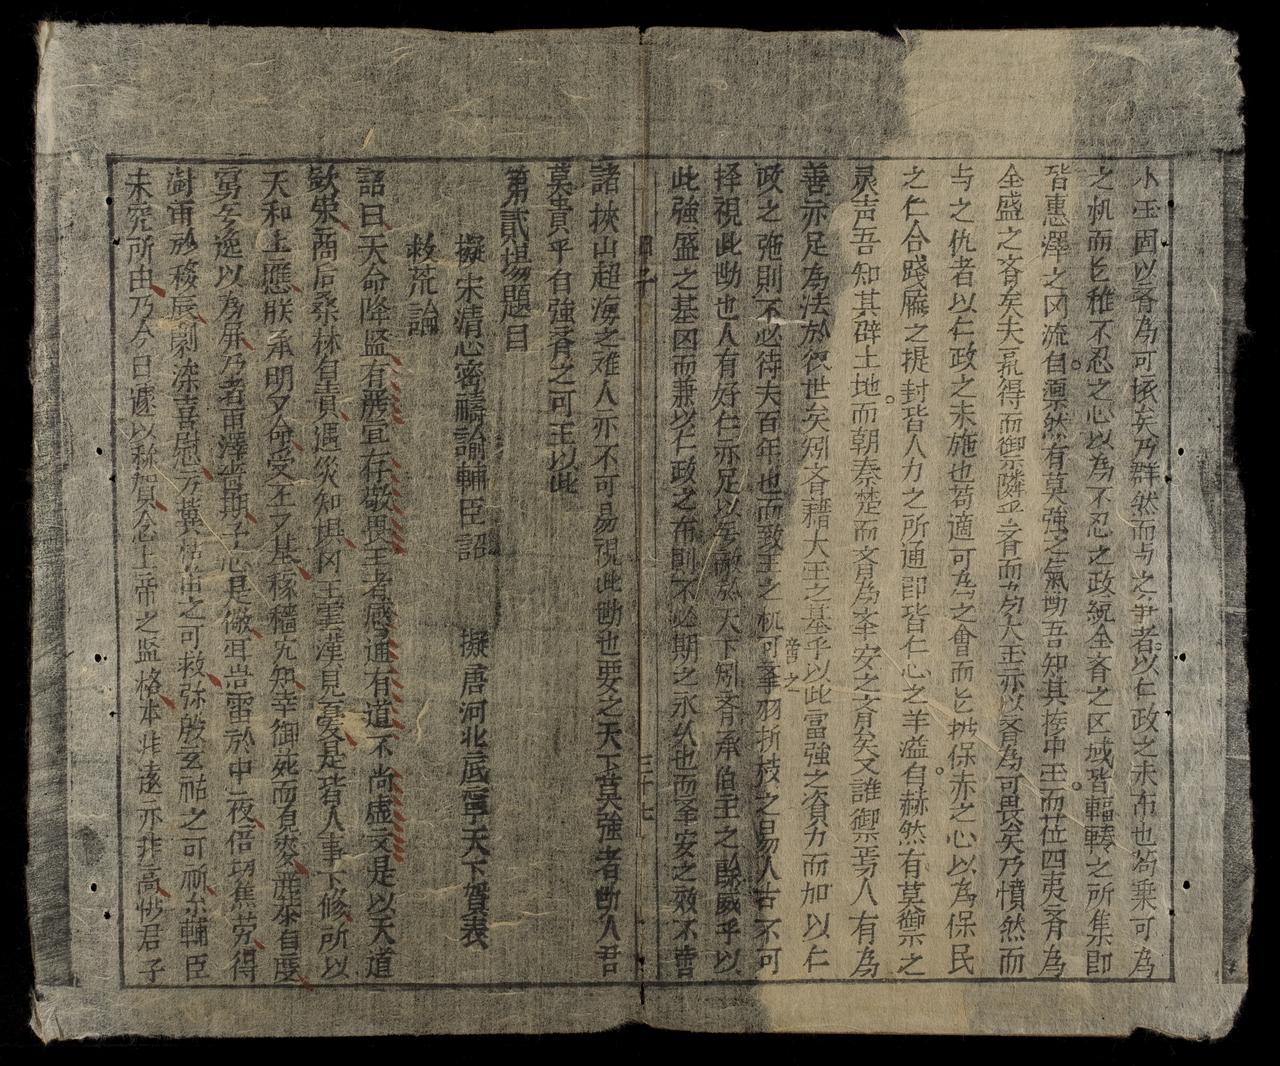 小王固以齐為可扼矣乃群然而与之爭者以仁政之未布也苟乗可為
之机而上稚不忍之心以為不忍之政統全斉之区域皆輻輳之所集即
皆惠澤之冈流自凛然有莫強之氣勢吾知其撫中国而莅四夷斉為
全盛之斉矣夫既得而御禦隣乎之斉而為大王亦以斉為可畏矣乃憤然而
与之仇者以仁政之未施也苟適可為之會而上推保赤之心以為保民
之仁合踐履之提封皆人力之所通即皆仁心之羊溢自赫然有莫禦之
灵声吾知其辟土地而朝秦楚而斉為平安之斉矣又誰禦焉人有為
善亦足為法於後世矣矧斉藉大王之基乎以此富強之資力而加以仁
政之施則不必待夫百年也而致王之机可挙羽折枝之易人古不可
普之
择視此勢也人有好仁亦足以無敵於天下矧斉承伯王之餘威乎以
此強盛之基因而兼以仁政之布則不必期之永久也而平安之效不啻
三十七
諸挾山超海之难人亦不可易視此勢也要之天下莫強者勢人君
莫貴乎自強斉之可王以此
第貳場題目
擬宋清心密禱諭輔臣詔　擬唐河北底寧天下賀表
救荒論
詔曰天命降監有嚴宜存敬畏王者感通有道不尚虚文是以天道
欽崇商后桑林自責遇災知懼冈王雲漢見憂是皆人事下修所以
天和上應朕承明々命受丕々基稼穡尤知幸御苑而見麥產恭自度
寧无逸以為屏乃者雨澤愆期予心是儆耳豈雷於中夜倍切焦劳得
澍雨於移辰劇深喜慰方冀枯苗之可救弥殷玄祐之可祈尔輔臣
未究所由乃今日遽以称賀念上帝之監格本非遠亦非高惟君子